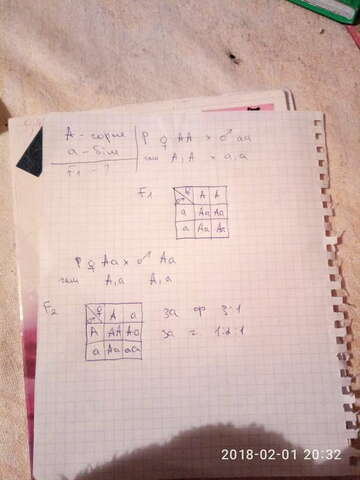 А - чорне
а - біле
F1 - ?
P ♀ AA × ♂ aa
гам A, A × a, a
F1
♀ A A
♂
a Aa Aa
a Aa Aa
P ♀ Aa × ♂ Aa
гам A, a A, a
F2
♀ A a
♂
A AA Aa
a Aa aa
за ф 3:1
за г. 1:2:1
2018-02-01 20:32